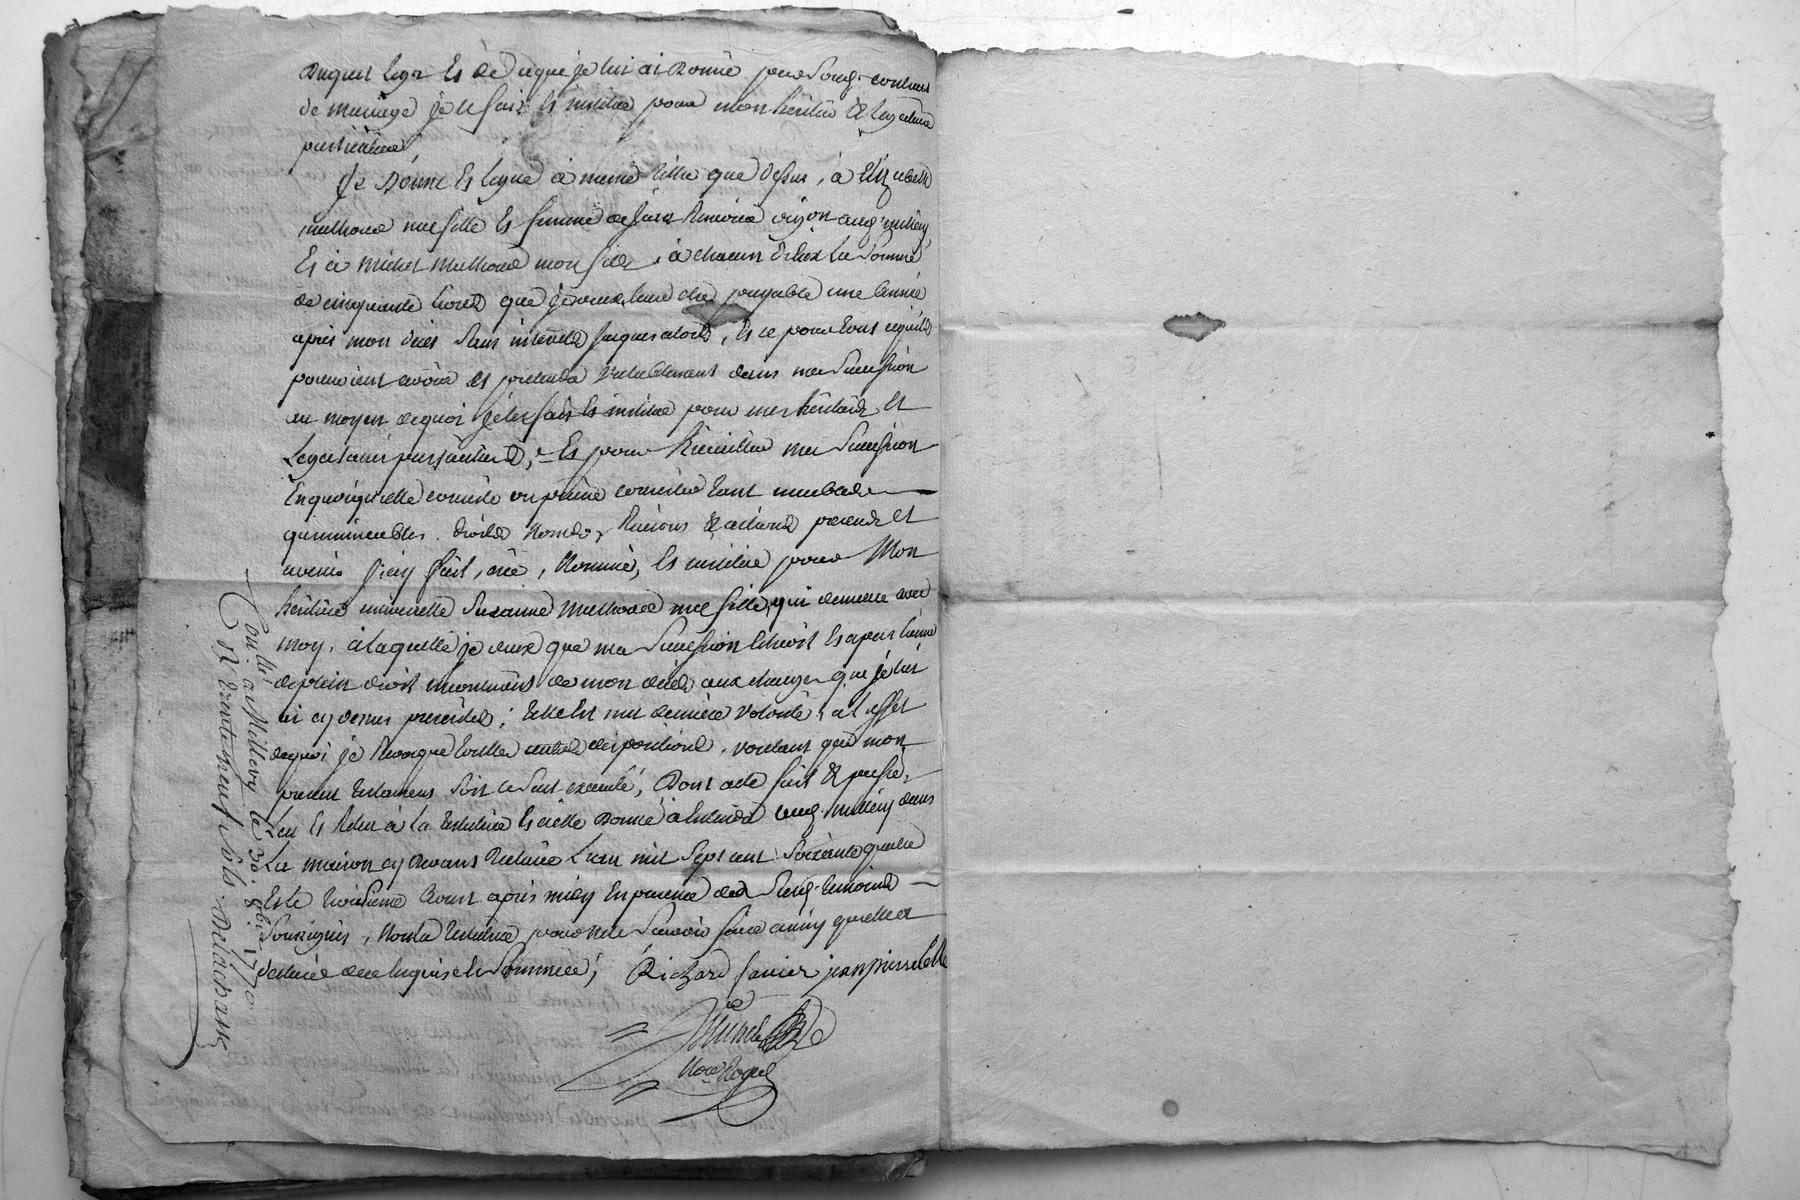 Duquel legs Et de ce que je lui ai Donné par Son Contrat
de mariage je le fais Et institue pour mon héritier & legataire
particulier
Je Donne Et legue à même titre que dessus, à Elizabeth
ma fille Et femme de audit millery
Et à Michel mon fils, à chacun d'Eux La Somme
de cinquante livres que je veux leur être payable une Année
après mon décès Sans interets jusques alors, Et ce pour tout ce qu'ils
pourroient avoir Et pretendre dans ma Succession
au moyen de quoi je les fais Et institue pour mes héritiers Et
Legataires particuliers, Et pour Recueillir ma Succession
En quoi qu'elle consiste ou puisse consister tant meubles
qu'immeubles. droits Noms, Raisons & actions presents Et
avenir J'ay fait, créé, Nommé, Et institue pour Mon
héritiere universelle Suzanne ma fille, qui demeure avec
moy, à laquelle je veux que ma Succession Et apartienne
de plein droit incontinent de mon décès aux charges que je lui
ai cy dessus ; telle Est ma derniere Volonté, à l'effet
de quoi je Revoque toutes autres dispositions, voulant que mon
present testament Soit le Seul executé, Dont acte fait & passé,
Leu Et Releu à La testatrice Et à Elle Donné à Entendre audit millery dans
La maison cy devant L'an mil Sept cent Soixante quatre
Et le Avant après midy En presence des Susdits temoins
Soussignés, Non la testatrice pour ne le Savoir faire ainsy qu'elle a
declaré de ce Enquise Et Sommée, Richard Janier jean pierre
Noe Royal
Con.lé à Millery le 30. 8bre 1770
R trente neuf sols.